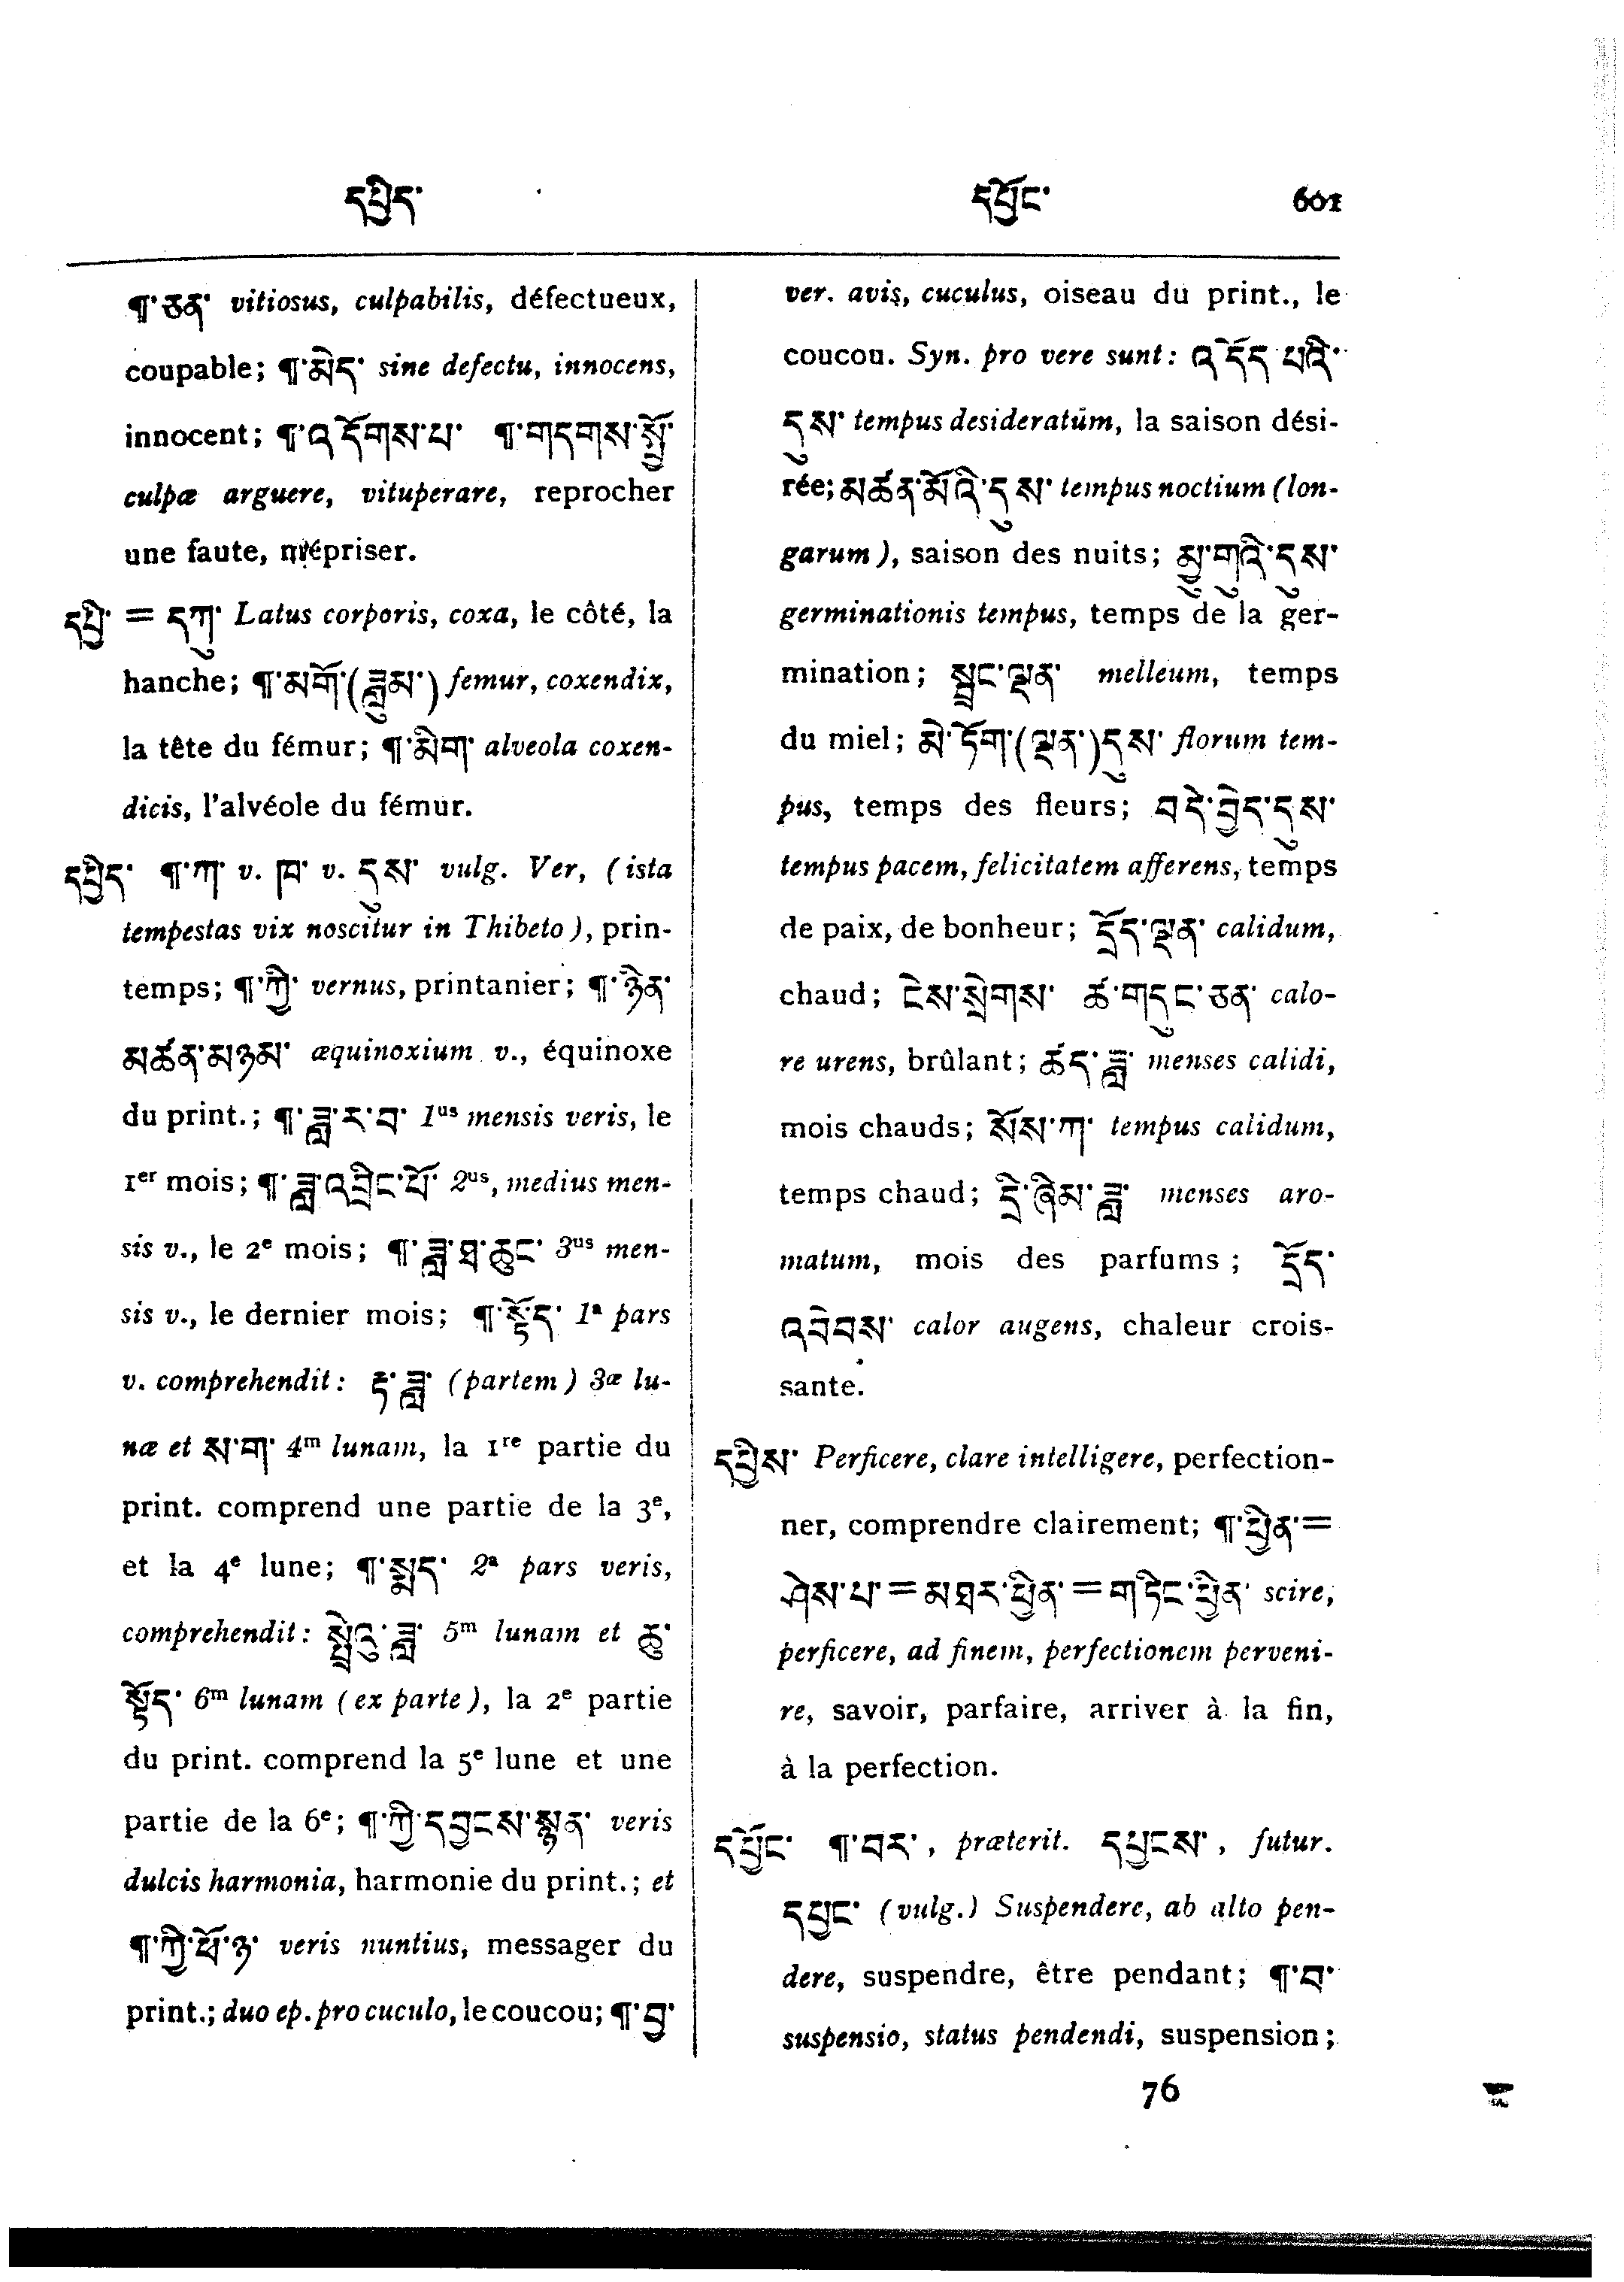 དཔྱིད་ དཔྱོང་ 601
¶་ཅན་ vitiosus, culpabilis, défectueux,
coupable; ¶་མེད་ sine defectu, innocens,
innocent; ¶་འདོགས་པ་ ¶་གདགས་སྤྱོ་
culpæ arguere, vituperare, reprocher
une faute, mépriser.
དཔྱི་ = དཀུ་ Latus corporis, coxa, le côté, la
hanche; ¶་མགོ་(ཟླུམ་) femur, coxendix,
la tête du fémur; ¶་མིག་ alveola coxen-
dicis, l'alvéole du fémur.
དཔྱིད་ ¶་ཀ་ v. ཁ་ v. དུས་ vulg. Ver, (ista
tempestas vix noscitur in Thibeto), prin-
temps; ¶་ཀྱི་ vernus, printanier; ¶་ཉིན་
མཚན་མཉམ་ æquinoxium v., équinoxe
du print.; ¶་ཟླ་ར་བ་ 1us mensis veris, le
1er mois; ¶་ཟླ་འབྲིང་པོ་ 2us, medius men-
sis v., le 2e mois; ¶་ཟླ་ཐ་ཆུང་ 3us men-
sis v., le dernier mois; ¶་སྟོད་ 1a pars
v. comprehendit: ཏ་ཟླ་ (partem) 3æ lu-
næ et ས་ག་ 4m lunam, la 1re partie du
print. comprend une partie de la 3e,
et la 4e lune; ¶་སྨད་ 2a pars veris,
comprehendit: སྤྲེའུ་ཟླ་ 5m lunam et ཆུ་
སྟོད་ 6m lunam (ex parte), la 2e partie
du print. comprend la 5e lune et une
partie de la 6e; ¶་ཀྱི་དབྱངས་སྙན་ veris
dulcis harmonia, harmonie du print.; et
¶་ཀྱི་ཕོ་ཉ་ veris nuntius, messager du
print.; duo ep. pro cuculo, le coucou; ¶་བྱ་
ver. avis, cuculus, oiseau du print., le
coucou. Syn. pro vere sunt: འདོད་པའི་
དུས་ tempus desideratum, la saison dési-
rée; མཚན་མོའི་དུས་ tempus noctium (lon-
garum), saison des nuits; མྱུ་གུའི་དུས་
germinationis tempus, temps de la ger-
mination; སྦྲང་ལྡན་ melleum, temps
du miel; མེ་ཏོག་(ལྡན་)དུས་ florum tem-
pus, temps des fleurs; བདེ་བྱེད་དུས་
tempus pacem, felicitatem afferens, temps
de paix, de bonheur; དྲོད་ལྡན་ calidum,
chaud; ངེས་སྲེགས་ ཚ་གདུང་ཅན་ calo-
re urens, brûlant; ཚད་ཟླ་ menses calidi,
mois chauds; སོས་ཀ་ tempus calidum,
temps chaud; དྲི་ཞིམ་ཟླ་ menses aro-
matum, mois des parfums; དྲོད་
འབེབས་ calor augens, chaleur crois-
sante.
དཔྱིས་ Perficere, clare intelligere, perfection-
ner, comprendre clairement; ¶་ཕྱིན་=
ཤེས་པ་=མཐར་ཕྱིན་=གཏིང་ཕྱིན་ scire,
perficere, ad finem, perfectionem perveni-
re, savoir, parfaire, arriver à la fin,
à la perfection.
དཔྱོང་ ¶་བར་, præterit. དཔྱངས་, futur.
དཔྱང་ (vulg.) Suspendere, ab alto pen-
dere, suspendre, être pendant; ¶་བ་
suspensio, status pendendi, suspension;
76